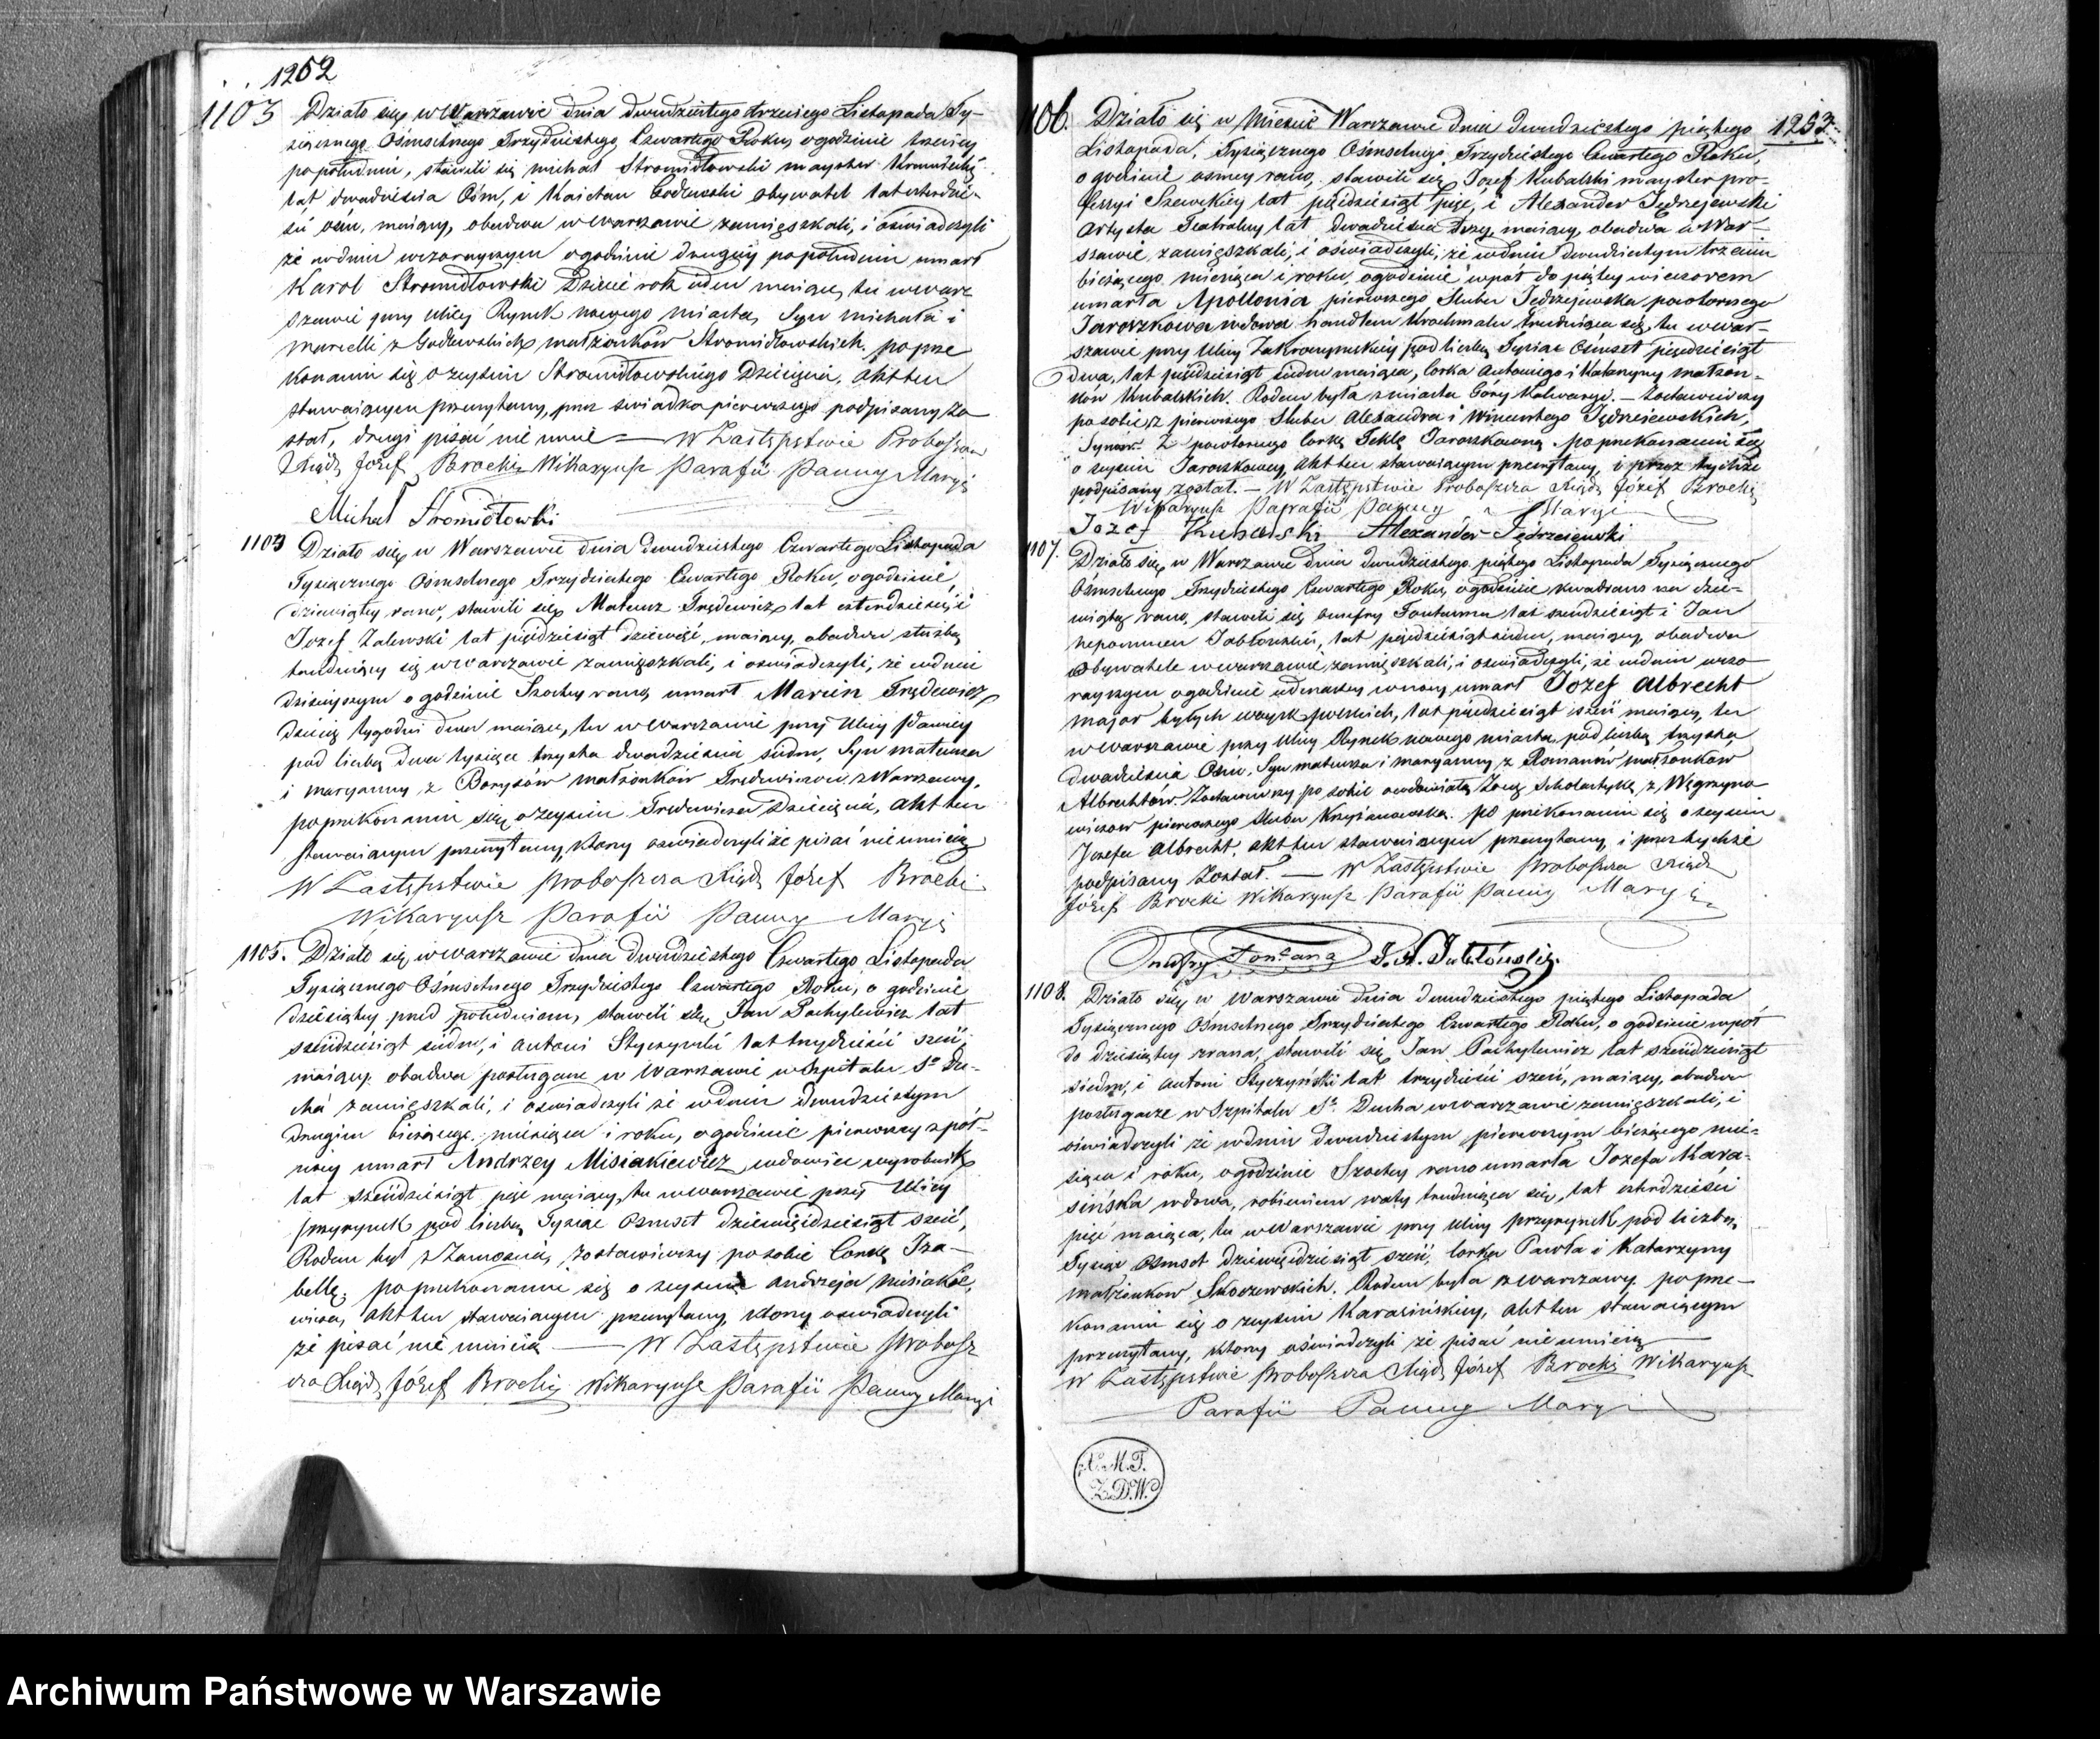 1252
1103 Działo się w Warszawie dnia dwudziestego trzeciego Listopada Ty-
siącznego Ośmsetnego Trzydziestego Czwartego Roku, o godzinie trzeciey
popołudniu, stawili się Michał Stromidłowski mayster
lat dwadzieścia Ośm, i Kaietan Godlewski obywatel lat czterdzie-
ści ośm, maiący, obadwa w Warszawie zamięszkali, i oświadczyli
że w dniu wczorayszym o godzinie drugiéy popołudniu umarł
Karol Stromidłowski Dziecie rok ieden maiące, tu w War-
szawie przy ulicy Rynek nowego miasta, Syn Michała i
Marcelli z Godlewskich małżonków Stromidłowskich. po prze
konaniu się o zeyściu Stromidłowskiego Dziecięcia, Akt ten
stawaiącym przeczytany, przez świadka pierwszego podpisany zo
stał, drugi pisać nie umie — W Zastępstwie Proboszcza
Xiądz Józef Brocki Wikaryusz Parafii Panny Maryi
Michał Stromidłowski
1104 Działo się w Warszawie dnia dwudziestego Czwartego Listopada
Tysiącznego Ośmsetnego Trzydziestego Czwartego Roku, o godzinie
dziewiątey rano, stawili się Mateusz Trędewicz lat czterdzieści i
Jozef Zalewski lat pięćdziesiąt dziewięć, maiący, obadwa służbą
trudniący się w Warszawie zamięszkali, i oświadczyli, że w dniu
dzisieyszym o godzinie Szóstey rano, umarł Marcin Trędewicz
Dziecię tygodni dwa maiące, tu w Warszawie przy Ulicy
pod liczbą dwa tysiące trzysta dwadzieścia siedm, Syn Mateusza
i Maryanny z Borysów małżonków Trędewiczów z Warszawy.
po przekonaniu się o zeyściu Trędewicza Dziecięcia, Akt ten
stawaiącym przeczytany, ktorzy oświadczyli że pisać nie umieią
W Zastępstwie Proboszcza Xiądz Józef Brocki
Wikaryusz Parafii Panny Maryi
1105. Działo się w Warszawie dnia Dwudziestego Czwartego Listopada
Tysiącznego Ośmsetnego Trzydziestego Czwartego Roku, o godzinie
dziesiątey przed południem, stawili się Jan Pachylewicz lat
sześćdziesiąt siedm, i Antoni Styczyński lat trzydzieści sześć,
maiący obadwa posługacze w Warszawie w Szpitalu Sgo Du-
cha zamięszkali, i oświadczyli że w dniu dwudziestym
drugim bieżącego miesiąca i roku, o godzinie pierwszey z pół-
nocy umarł Andrzey Misiakiewicz, wdowiec wyrobnik,
lat sześćdziesiąt pięć maiący, tu w Warszawie przy Ulicy
przyrynek pod liczbą Tysiąc Ośmset dziewięćdziesiąt sześć,
Rodem był z Zamościa, zostawiwszy po sobie Corkę Iza-
bellę; po przekonaniu się o zeyściu Andrzeja Misiakie-
wicza, Akt ten stawaiącym przeczytany, ktorzy oświadczyli
że pisać nie umieią — W Zastępstwie Probosz
cza Xiądz Józef Brocki Wikaryusz Parafii Panny Maryi
1253
1106. Działo się w Mieście Warszawie dnia dwudziestego piątego
Listopada, Tysiącznego Ośmsetnego Trzydziestego Czwartego Roku,
o godzinie osmey rano, stawili się Jozef Kubalski mayster pro-
fessyi Szewckiey lat pięćdziesiąt pięć, i Alexander Jędrzejewski
Artysta Teatralny lat dwadzieścia trzy, maiący, obadwa w War-
szawie zamięszkali, i oświadczyli, że w dniu dwudziestym trzecim
bieżącego miesiąca i roku, o godzinie wpół do piątey wieczorem
umarła Apollonia pierwszego Slubu Jędrzejewska powtornego
Jaroszkowa wdowa handlem krochmalu trudniąca się, tu w War-
szawie przy Ulicy Zakroczymskiey pod liczbą Tysiąc Ośmset pięćdziesiąt
dwa, lat pięćdziesiąt siedm maiąca, Corka Antoniego i Katarzyny małżon-
ków Kubalskich. Rodem była z miasta Góry Kalwaryi. — Zostawiwszy
po sobie z pierwszego Slubu Alexandra i Wincentego Jędrzejewskich,
Synów. Z powtornego Corkę Teklę Jaroszkowną. po przekonaniu się
o zeyściu Jaroszkowey, Akt ten stawaiącym przeczytany, i przez tychże
podpisany został. — W Zastępstwie Proboszcza Xiądz Józef Brocki
Wikaryusz Parafii Panny Maryi
Jozef Kubalski Alexander Jędrzejewski
1107. Działo się w Warszawie dnia dwudziestego piątego Listopada Tysiącznego
Ośmsetnego Trzydziestego Czwartego Roku, o godzinie kwadrans na dzie-
wiątą rano, stawili się Onufry Fontanna lat sześćdziesiąt i Jan
Nepomucen Jabłoński, lat pięćdziesiąt siedm, maiący, obadwa
obywatele w Warszawie zamięszkali, i oświadczyli, że w dniu wczo-
rayszym o godzinie iedenastey w nocy, umarł Jozef Albrecht
major byłych woysk polskich, lat pięćdziesiąt sześć maiący, tu
w Warszawie przy Ulicy Rynek nowego miasta, pod liczbą trzysta
dwadzieścia Ośm, Syn Mateusza i Maryanny z Romanów małżonków
Albrechtów. Zostawiwszy po sobie owdowiałą Żonę Scholastykę z Węgrzyno
wiczow pierwszego Slubu Krzyżanowską. Po przekonaniu się o zeyściu
Jozefa Albrecht, Akt ten stawaiącym przeczytany, i przez tychże
podpisany został. — W Zastępstwie Proboszcza Xiądz
Józef Brocki Wikaryusz Parafii Panny Maryi
Onufry Fontana J. N. Jabłoński.
1108. Działo się w Warszawie dnia dwudziestego piątego Listopada
Tysiącznego Ośmsetnego Trzydziestego Czwartego Roku, o godzinie wpół
do dziesiątey zrana, stawili się Jan Pachylewicz lat sześćdziesiąt
siedm, i Antoni Styczyński lat trzydzieści sześć, maiący, obadwa
posługacze w Szpitalu Sgo Ducha w Warszawie zamięszkali, i
oświadczyli że w dniu dwudziestym pierwszym bieżącego mie-
siąca i roku, o godzinie Szóstey rano umarła Jozefa Kara-
sińska wdowa, robieniem waty trudniąca się, lat czterdzieści
pięć maiąca, tu w Warszawie przy Ulicy przyrynek pod liczbą
Tysiąc Ośmset dziewięćdziesiąt sześć, Corka Pawła i Katarzyny
małżonków Skoczewskich. Rodem była z Warszawy. po prze-
konaniu się o zeyściu Karasińskiey, Akt ten stawaiącym
przeczytany, ktorzy oświadczyli że pisać nie umieią
W Zastępstwie Proboszcza Xiądz Józef Brocki Wikaryusz
Parafii Panny Maryi
M. T.
Z. D. W.
Archiwum Państwowe w Warszawie